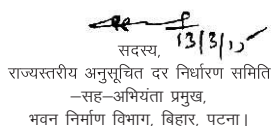 13/3/15
सदस्य,
राज्यस्तरीय अनुसूचित दर निर्धारण समिति
–सह–अभियंता प्रमुख,
भवन निर्माण विभाग, बिहार, पटना।